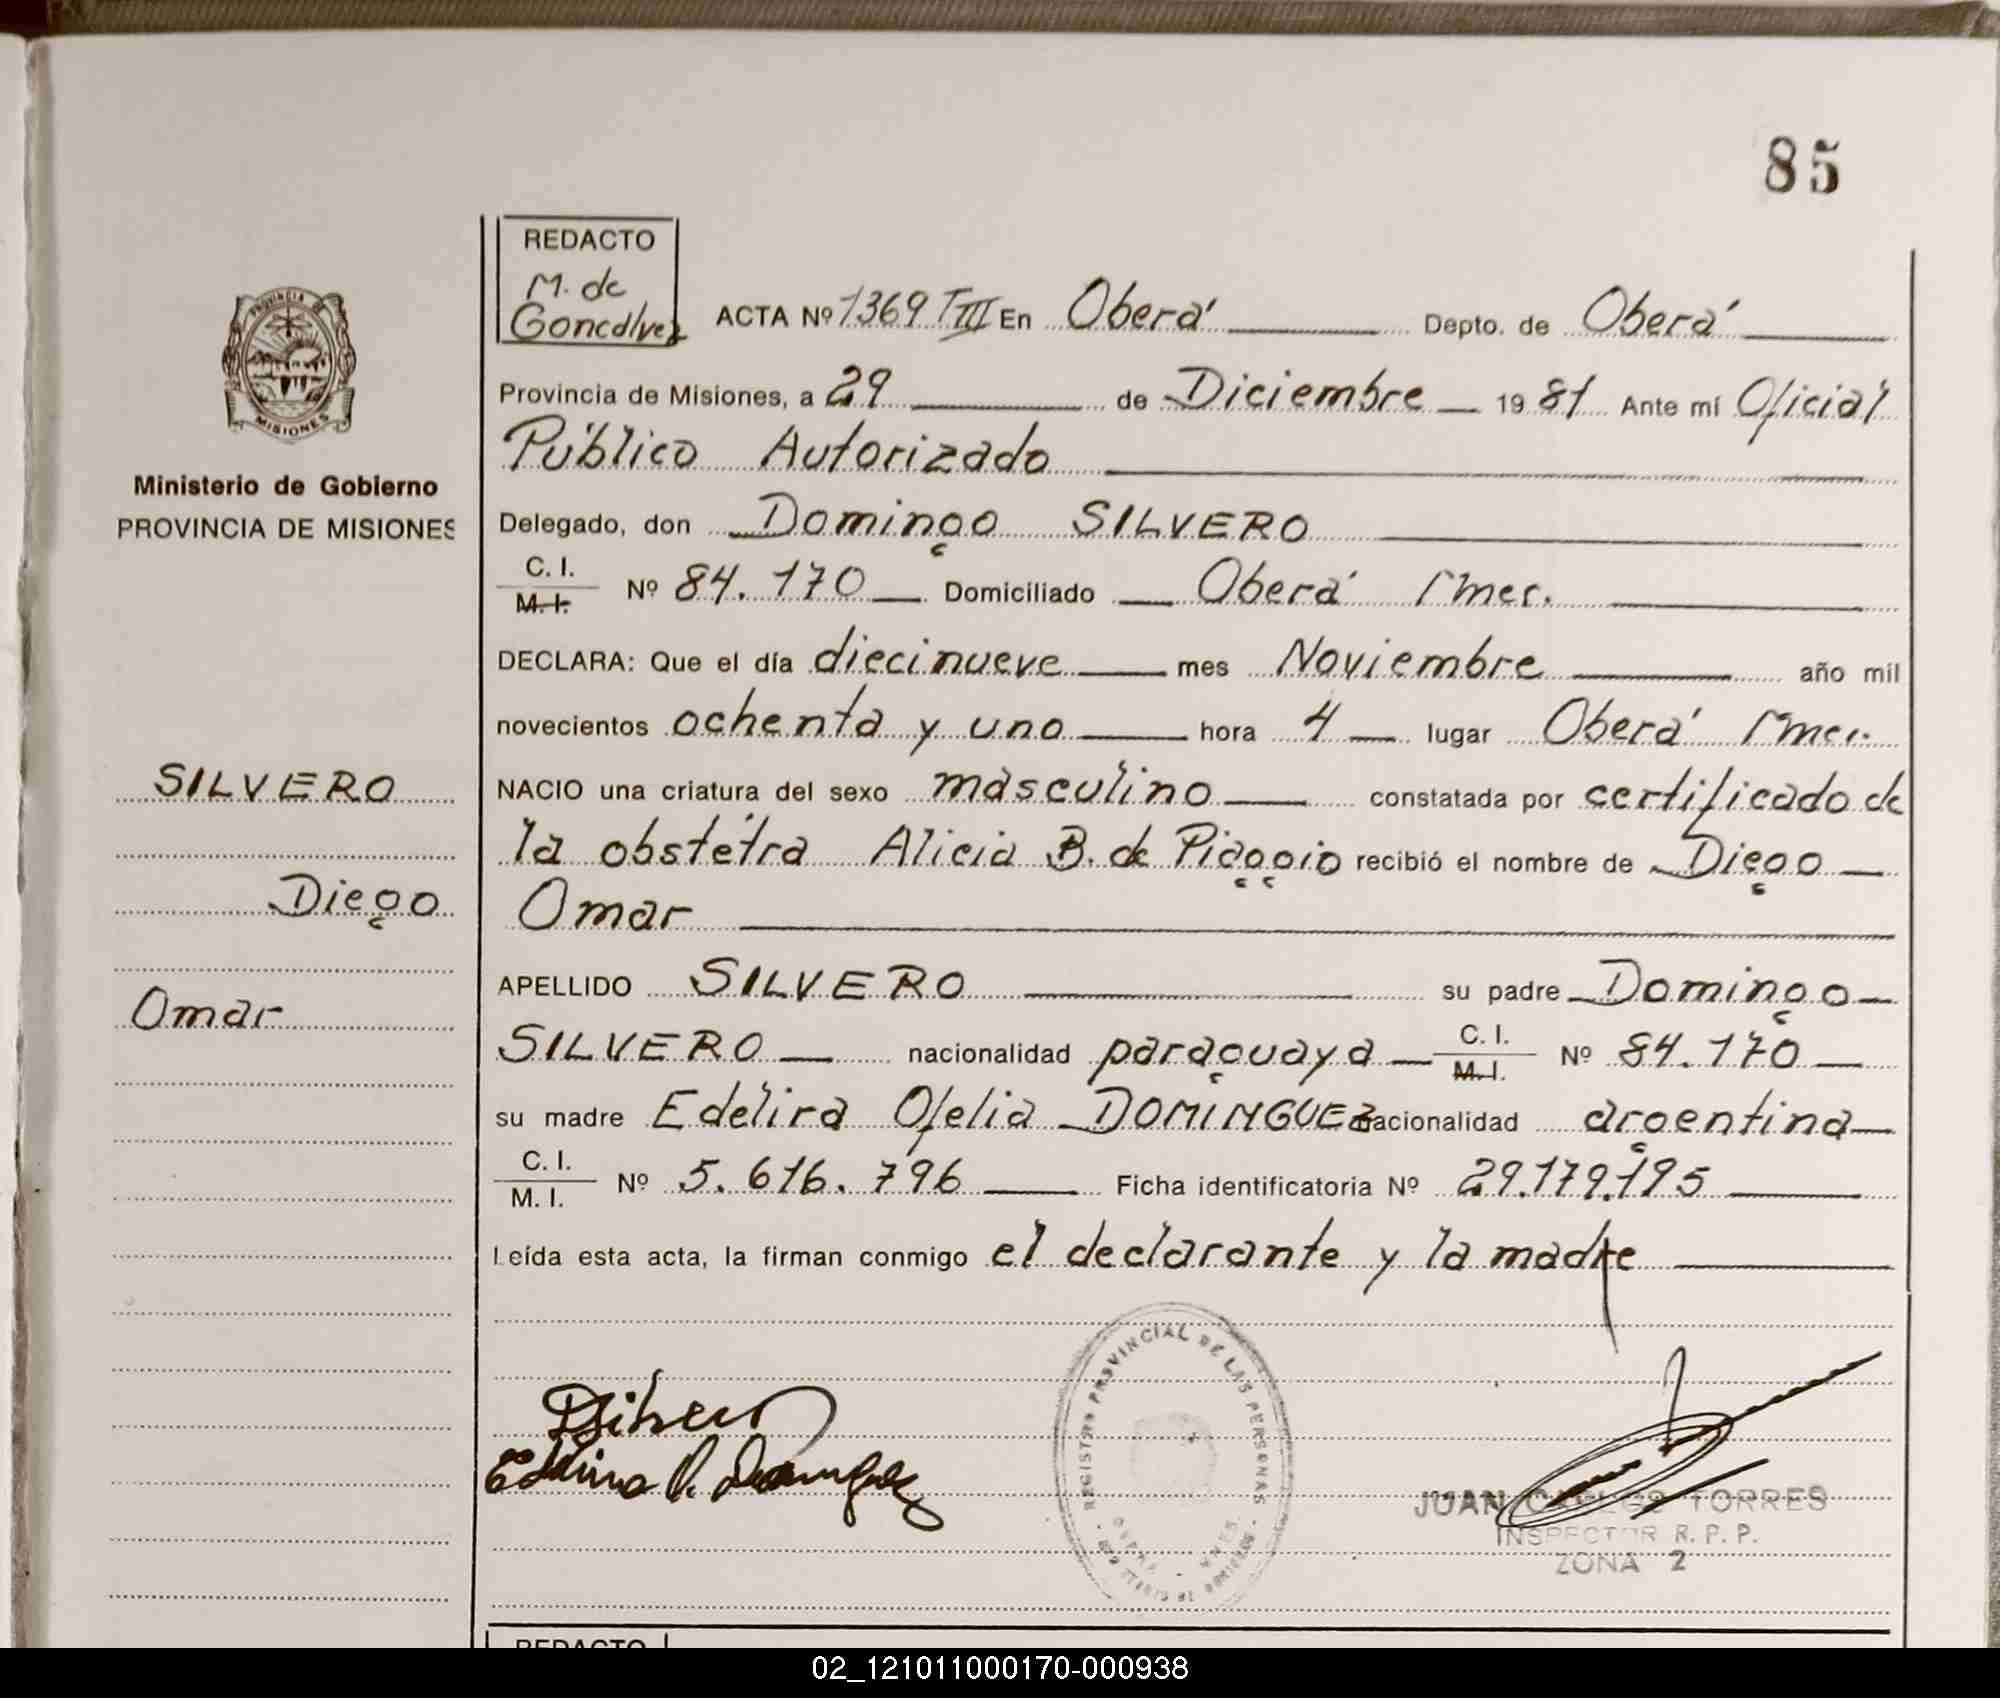 85
REDACTO
M. de
Goncalvez
ACTA Nº 1369 TIII En Oberá Depto. de Oberá
Provincia de Misiones, a 29 de Diciembre 1981 Ante mí Oficial
Público Autorizado
PROVINCIA DE
MISIONES
Ministerio de Gobierno
PROVINCIA DE MISIONES
Delegado, don Domingo SILVERO
C. I.
M. I. Nº 84.170 Domiciliado Oberá Mnes.
DECLARA: Que el día diecinueve mes Noviembre año mil
novecientos ochenta y uno hora 4 lugar Oberá Mnes.
SILVERO
NACIO una criatura del sexo masculino constatada por certificado de
la obstétra Alicia B. de Piaggio recibió el nombre de Diego
Diego
Omar
APELLIDO SILVERO su padre Domingo
Omar
SILVERO nacionalidad paraguaya C. I. M. I. Nº 84.170
su madre Edelira Ofelia DOMINGUEZ nacionalidad argentina
C. I.
M. I. Nº 5.616.796 Ficha identificatoria Nº 29.179.195
Leída esta acta, la firman conmigo el declarante y la madre
REGISTRO PROVINCIAL DE LAS PERSONAS
JUAN CARLOS TORRES
INSPECTOR R. P. P.
ZONA 2
REDACTO
02_121011000170-000938